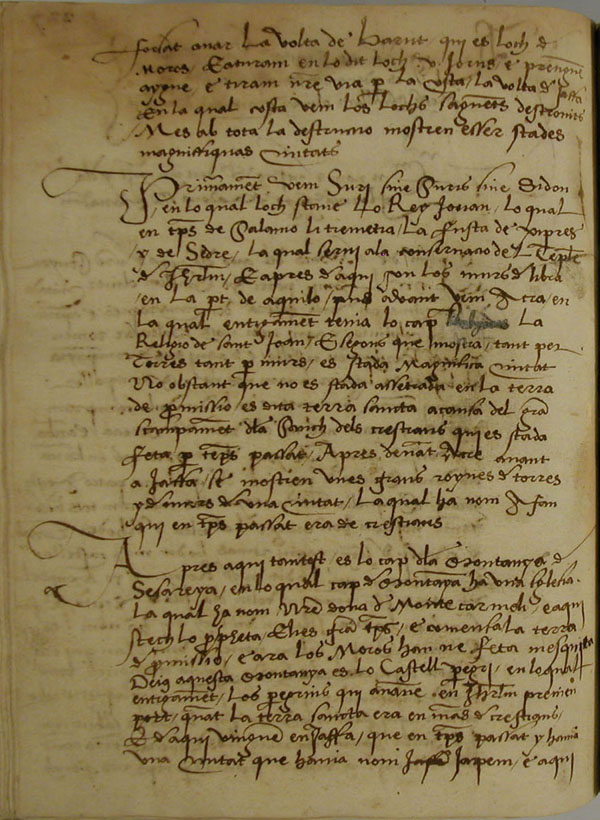 forsat anar la volta de Barut qui es loch de
Moros, Eatiram en lo dit loch v Jorns e prengue
aygue e tiram nre via p la Costa, la volta de Jaffa
En la qual costa vem los lochs saguets destrouits
Mes ab tota la destructio mostren esser stades
magniffiquas Ciutats
Primament vem Suri sine Suris sine Sidon
en lo qual loch stave Lo Rey Joiran, lo qual
en tps de Salamo li tremetia la fusta de xipres
y de Sedre, la qual servi a la conservacio del Temple
de Jhrlm, Eapres daqui son los murs de libia
en la pt de aquilo, pus avant vem Acra, en
la qual entigament tenia lo cap la
Religio de sant Joan, E segons que mostra, tant per
Torres tant p murs, es stada Magnifica Ciutat
No obstant que no es stada assetiada en la terra
de pmissio es dita terra sancta a causa del gra
scampament dla Sanch dels crestians qui es stada
feta p tps passat, Apres denat Acre anant
a Jaffa, se mostren unes grans roynes de torres
y de murs de una Ciutat, La qual ha nom Afan
qui en tps passat era de crestians
Apres aqui tantost es lo cap dla Montanya de
Sesareya, en lo qual cap de Montanya ha una Iglesia
La qual ha nom Nre dona de Monte carmeli, e aqui
stech lo ppheta Elies gra tps, e comensa la terra
de pmissio, e ara los Moros han ne feta mesquita
Deig aquesta Montanya es lo Castell pegri, en lo qual
entigament, los pegrins qui anave en Jhrlm prenien
port, quat la terra sancta era en mas de crestians,
E daqui vingue en Jaffa, que en tps passat y havia
una Ciutat que havia nom Japem, e aqui